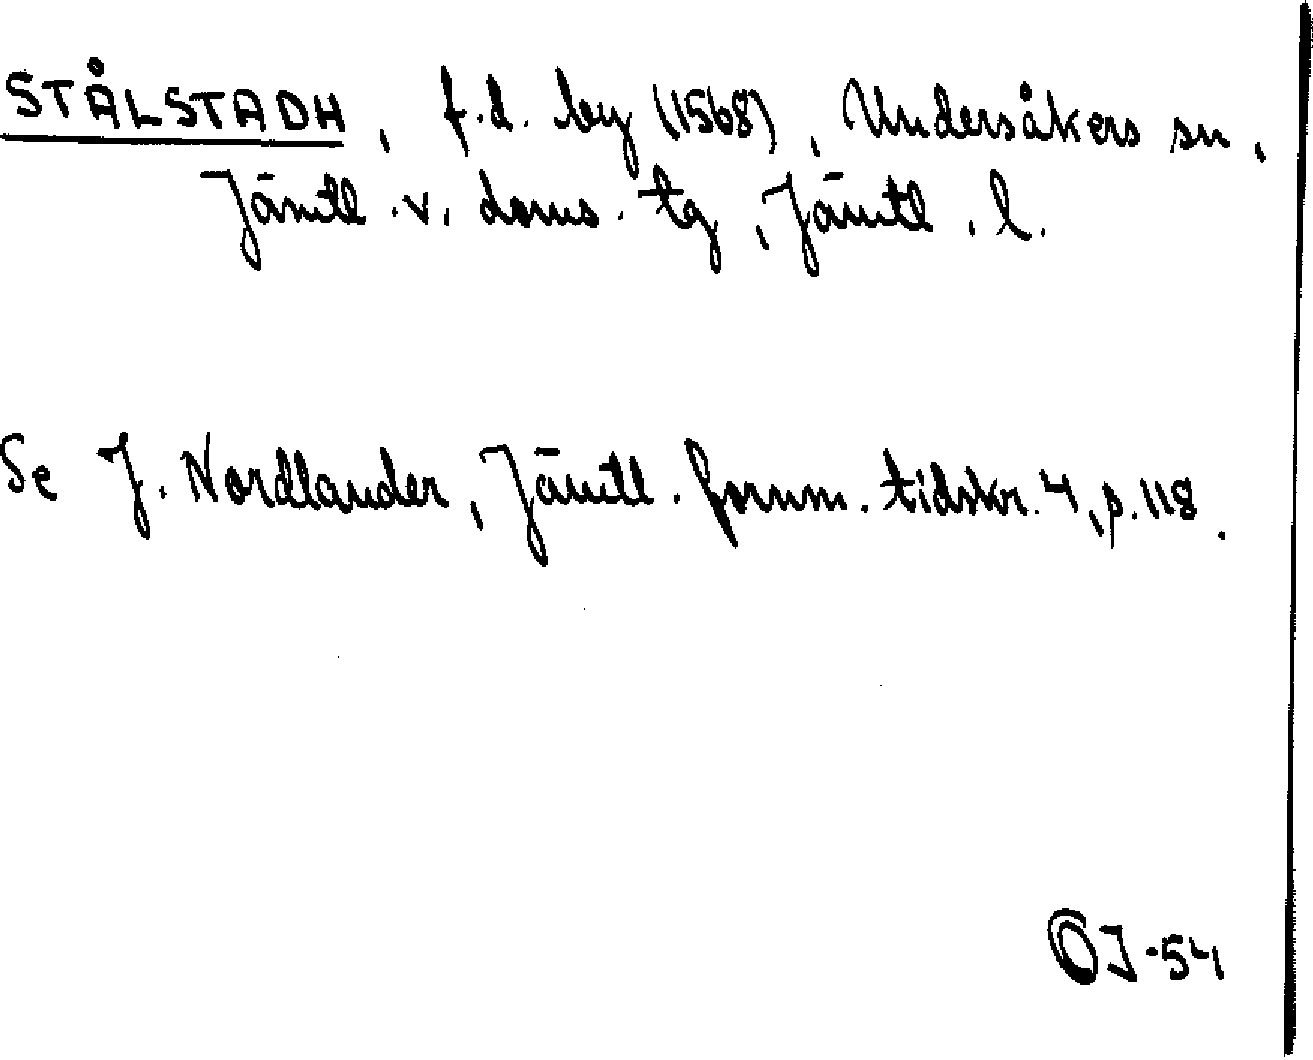 STÅLSTADH, f.d. by (1568), Undersåkers sn,
Jämtl. v. doms. tg, Jämtl. l.
Se J. Nordlander, Jämtl. fornm. tidskr. 4, p. 118.
OJ-54